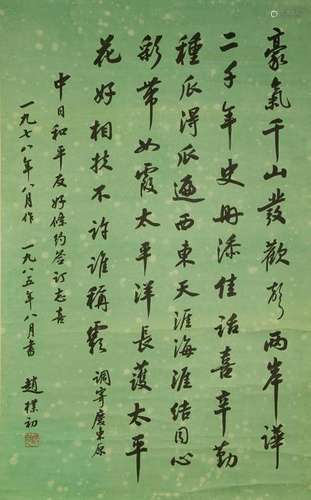 豪氣千山發歡聲兩岸譁
二千年史冊添佳話喜辛勤
種瓜得瓜遍西東天涯海涯結同心
彩帶如霞太平洋長護太平
花好相扶不許誰稱霸 調寄廣東原
中日和平友好條約簽訂志喜
一九七八年八月作 一九八五年八月書 趙樸初